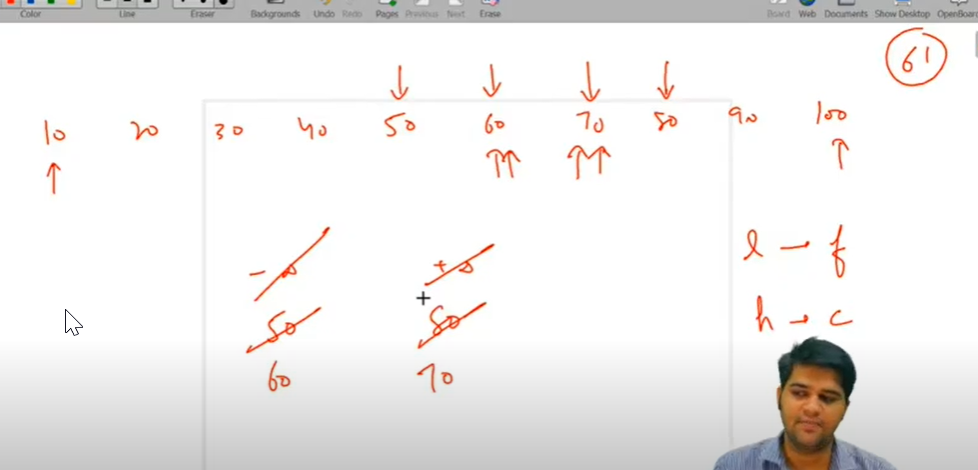 Color Line Eraser Backgrounds Undo Redo Pages Previous Next Erase Board Web Documents Show Desktop OpenBoard
61
10 20 30 40 50 60 70 80 90 100
l → f
- ∞ + ∞
h → c
50 80
60 70